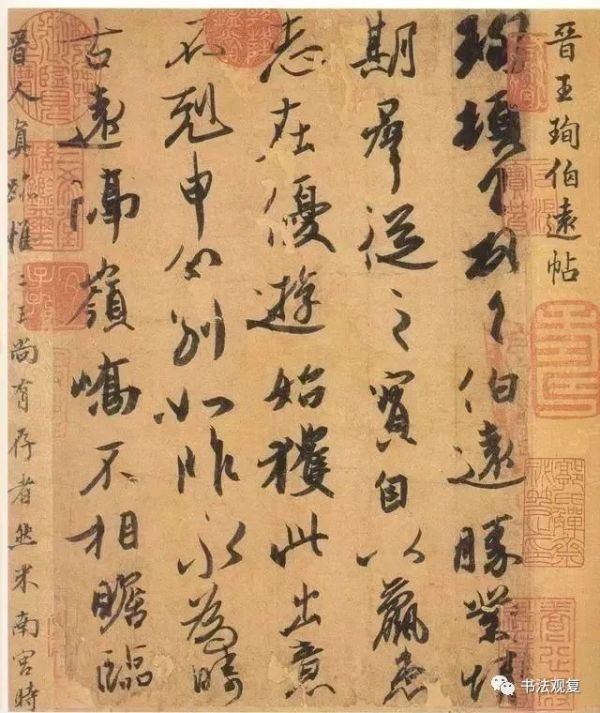 晋王珣伯遠帖
珣頓首頓首伯遠勝業情
期群從之寶自以羸患
志在優遊始獲此出意
不剋申分別如昨永為疇
古遠隔嶺嶠不相瞻臨
晉人真跡惟二王尚有存者然米南宮時
书法观复